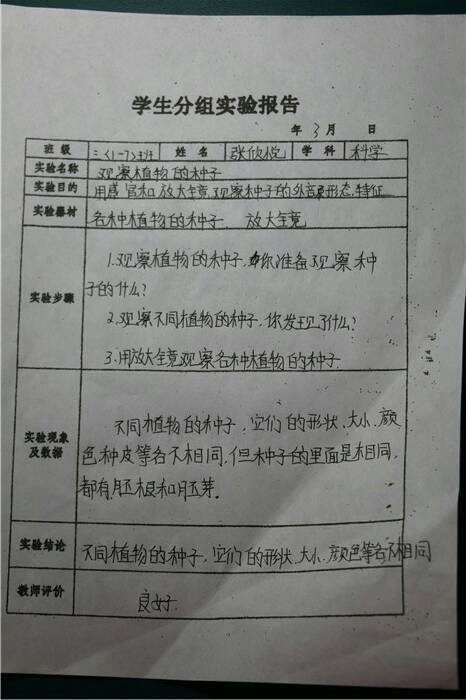 学生分组实验报告
年 3月 日
班级 三<1-7>班 姓名 张欣悦 学科 科学
实验名称 观察植物的种子
实验目的 用感官和放大镜观察种子的外部形态特征
实验器材 各种植物的种子. 放大镜
1.观察植物的种子.你准备观察种
子的什么?
实验步骤
2.观察不同植物的种子.你发现了什么?
3.用放大镜观察各种植物的种子.
不同植物的种子,它们的形状、大小、颜
实验现象
色种皮等各不相同.但种子的里面是相同,
及数据
都有胚根和胚芽.
实验结论 不同植物的种子,它们的形状、大小、颜色等各不相同
教师评价 良好.